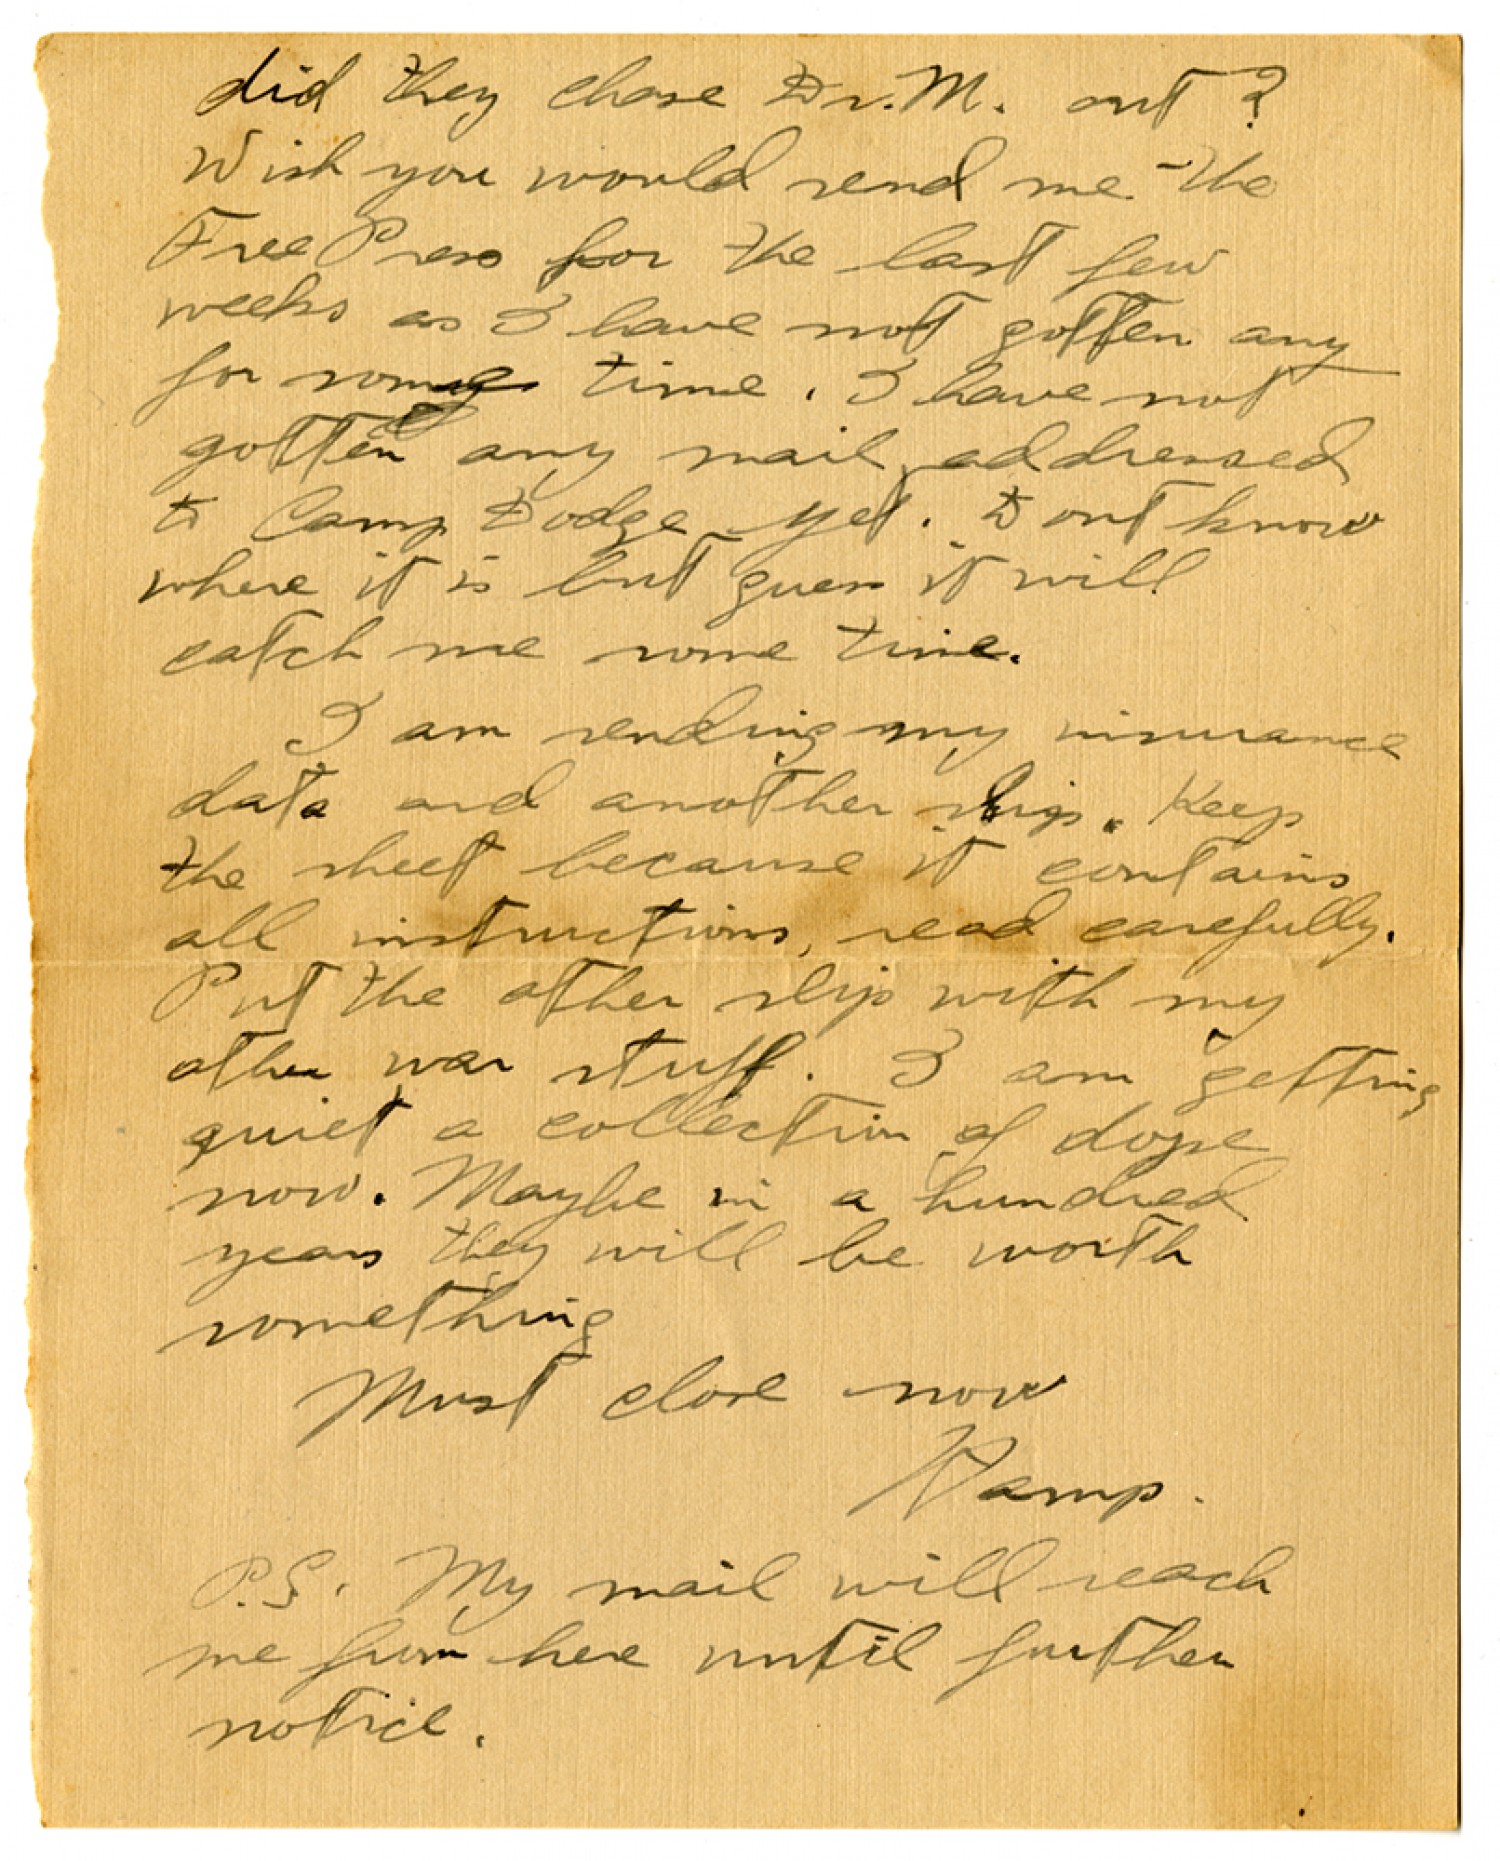 did they chase Dr. M. out?
Wish you would send me the
Free Press for the last few
weeks as I have not gotten any
for some time. I have not
gotten any mail addressed
to Camp Dodge yet. Dont know
where it is but guess it will
catch me some time.
I am sending my insurance
data and another slip. Keep
the sheet because it contains
all instructions, read carefully.
Put the other slip with my
other war stuff. I am getting
quiet a collection of dope
now. Maybe in a hundred
years they will be worth
something
Must close now
Hamp.
P.S. My mail will reach
me from here until further
notice.